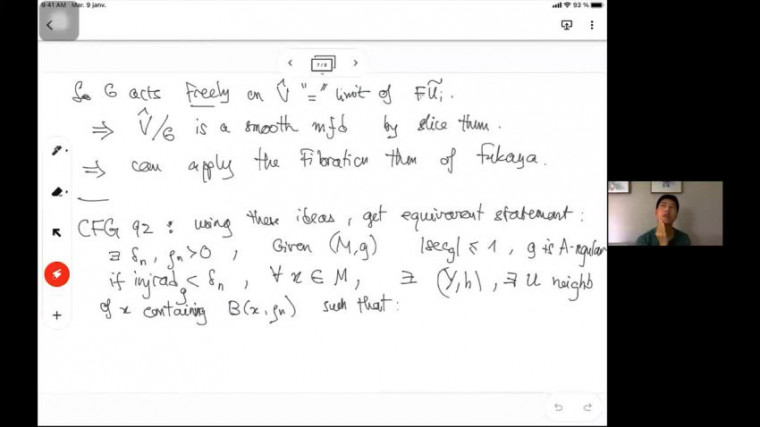 9:41 AM Mar. 9 janv.
93 %
7/8
So G acts Freely on V̂ "=" limit of FŨᵢ.
⇒ V̂/G is a smooth mfd by slice thm.
⇒ can apply the Fibration thm of Fukaya.
CFG 92 : using these ideas, get equivariant statement :
∃ δₙ, ρₙ>0 , Given (M,g) |sec_g| ≤ 1 , g is A-regular
if injrad_g < δₙ , ∀ x ∈ M , ∃ (Y,h) , ∃ U neighb
of x containing B(x,ρₙ) such that :